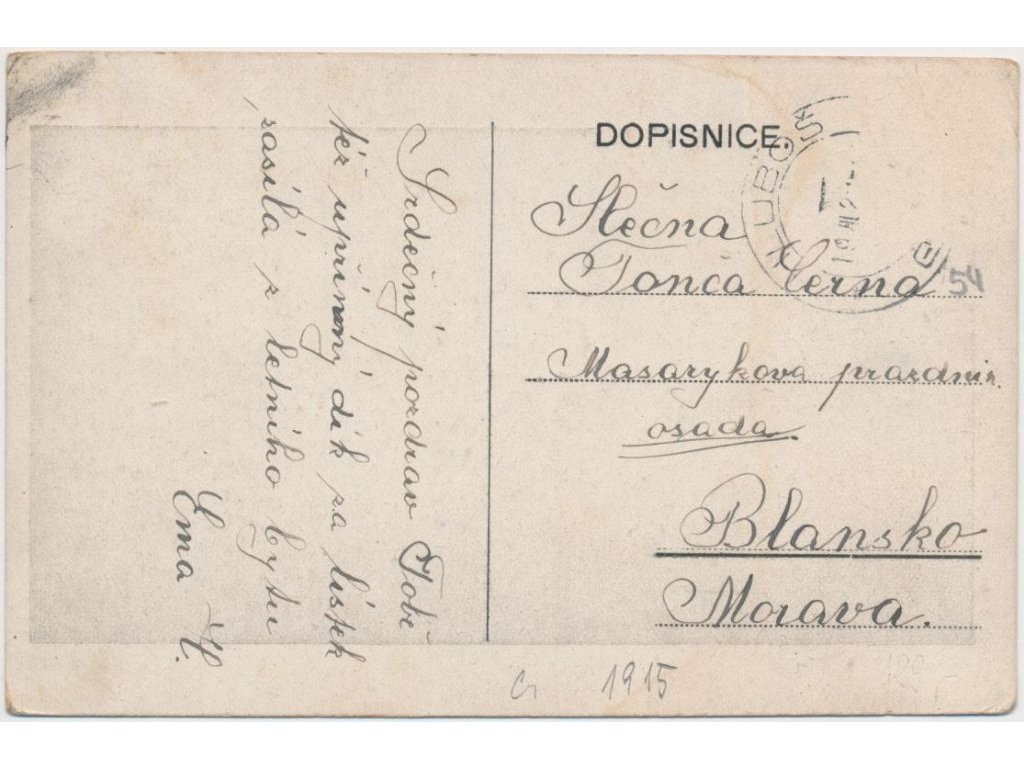 DOPISNICE.
Slečna
Tonča Černá
Masarykova prázdnin.
osada.
Blansko
Morava.
Srdečný pozdrav Tobě
též upřímný dík za lístek
zasílá z letního bytu
Ema H.
54
1915